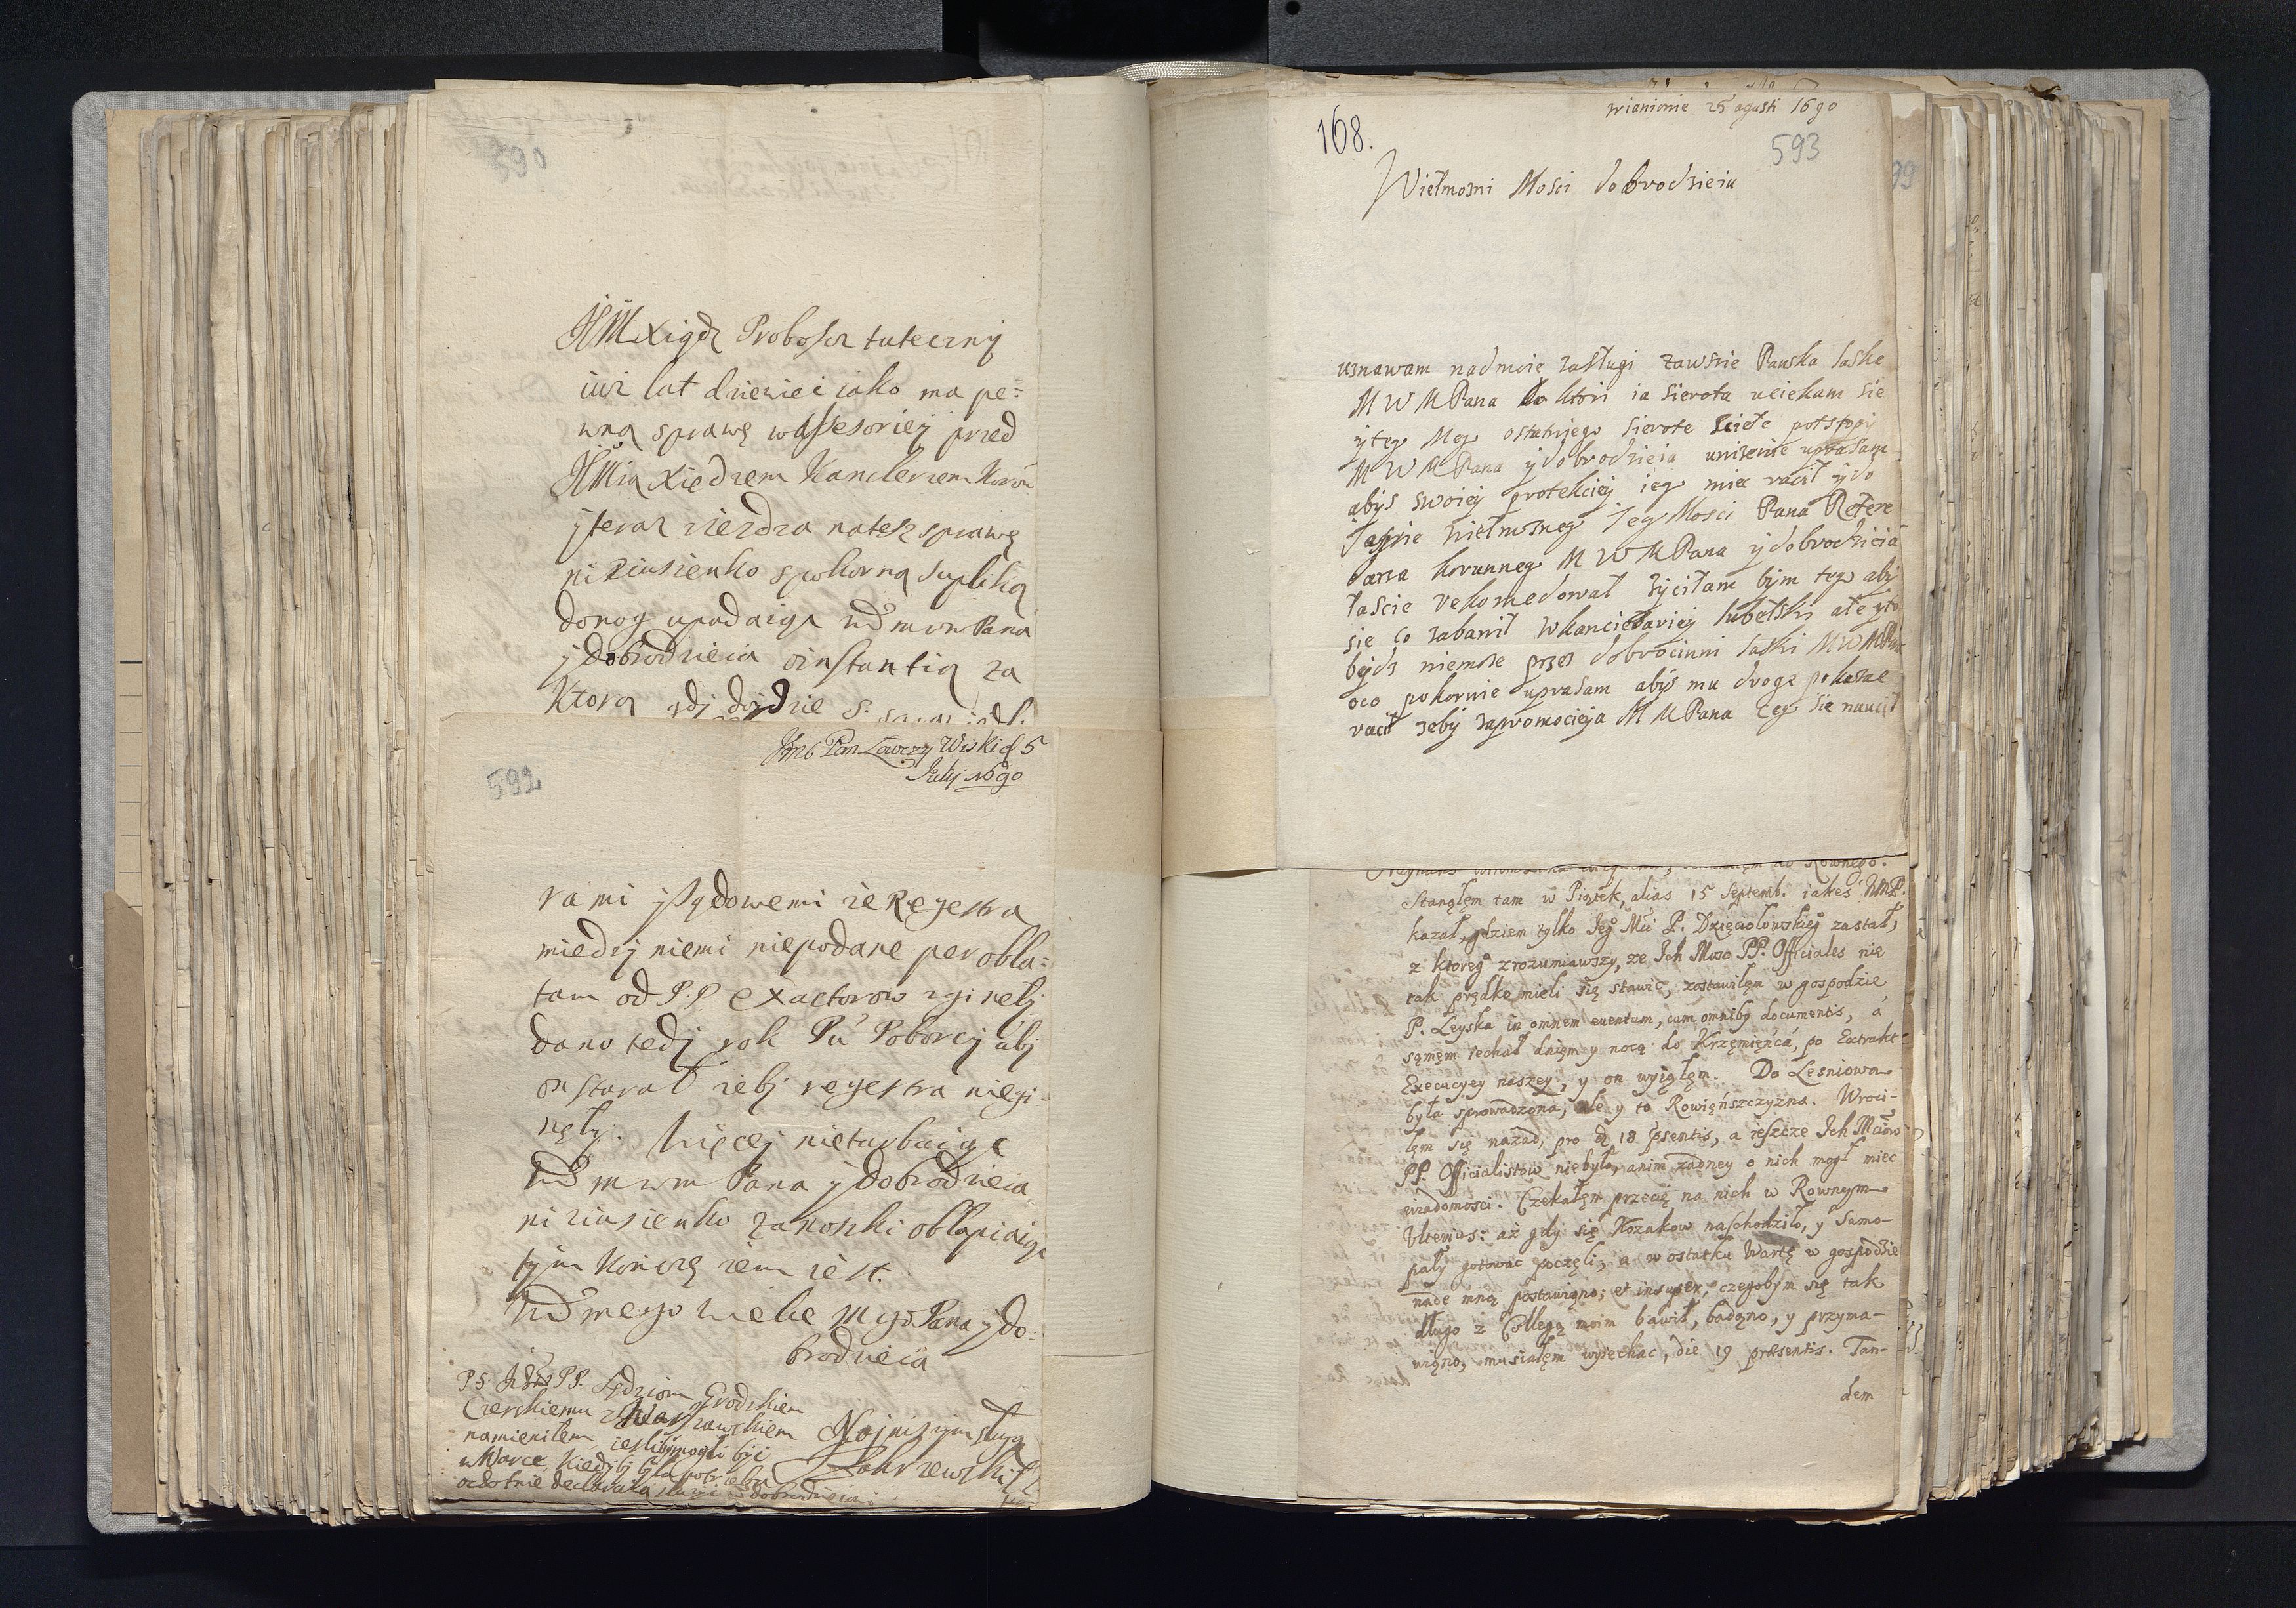 590
JMX iądz Probosz tuteczny
iuż lat dziewięć iako ma pe=
wną sprawę w Assesoriey przed
JMią Xiedzem Kanclerzem Koron
y teraz ziezdza na tesz sprawę
niziusienko z pokorną supliką
do nog upadaiąc WM mw Pana
y Dobrodzieia o instantią za
Ktorą gdj dojdzie S.
Pan Łowczy Wiski d 5
Julij 1690
592
rami y Sądowemi ze Regestra
miedzy niemi niepodane per obla=
tam od P.P. Exactorow zginęły
dano tedj rok Pu Poborcy abj
on starał żebj regestra niegi=
nęły. Więcej nieturbuiąc
WM mwm Pana y Dobrodzieia
niziusienko za noszki obłapiaiąc
tym Koniczę żem iest.
WM mego Wielce Mego Pana y Do=
brodzieia
PS. PP. Sędziom Grodzkiem
Czerskiemu Warszawskiem
namieniłem ieslibj mogli byc
w Warce kiedj bj była potrzeba
ochotnie deklaruią Dobrodzieiowi
Najniszym sługą
Zakrzewski
168.
wianionie 25 agusti 1690
593
Wiełmozni Mosci dobrodzieiu
uznawam nad moie zasługi zawszie Panska łaske
M W M Pana do ktori ia sierota uciekam sie
y teg Meg ostatniego sierote sciele pot stopy
M W M Pana y dobrodzieia unizenie uprasam
abys swoiey protekciey ieg miec racił y do
Jasnie wiełmoneg Jeg Mosci Pana Refere
darza korunneg M W M Pana y dobrodzieia
łascie rekomedował zyciłam bym teg aby
sie co zabawił w kancielariey lubelski ale yto
bydz niemoze przez dobrocinni łaski M W M Pana
oco pokornie uprasam abys mu droge pokazac
racił zeby za promocieja M M Pana teg sie naucił
99
Rownego.
Stanąłem tam w Piątek, alias 15 Septemb. iakeś WMP.
kazał, gdziem tylko Jeg Mći P. Dzięciołowskieg zastał,
z ktoreg zrozumiawszy, że Ich Mość PP. Officiales nie
tak prędko mieli się stawić, zostawiłem w gospodzie
P. Leyska in omnem euentum, cum omniby documentis, á
samem iechał dniem y nocą do Krzęmięńcá, po Extrakt
Execucyey naszey, y on wyięłem. Do Lesniowa
była sprowadzona; ale y to Rowięńszczyzna. Wroci-
łem się nazad, pro d 18 psentis, a ieszcze Ich Mciow
PP. Officialistow niebyło, anim żadney o nich mogł miec
wiadomości. Czekałem przecię na nich w Rownym
Vlterius: aż gdy się Kozakow naschodziło, y Samo-
pały gotować poczęli, a w ostatku Wartę w gospodzie
nade mną postawiono; et insuper, czegobym się tak
długo z Collegą moim bawił, badano, y przyma-
wiąno, musiałem wyiechac, die 19 præsentis. Tan-
dem